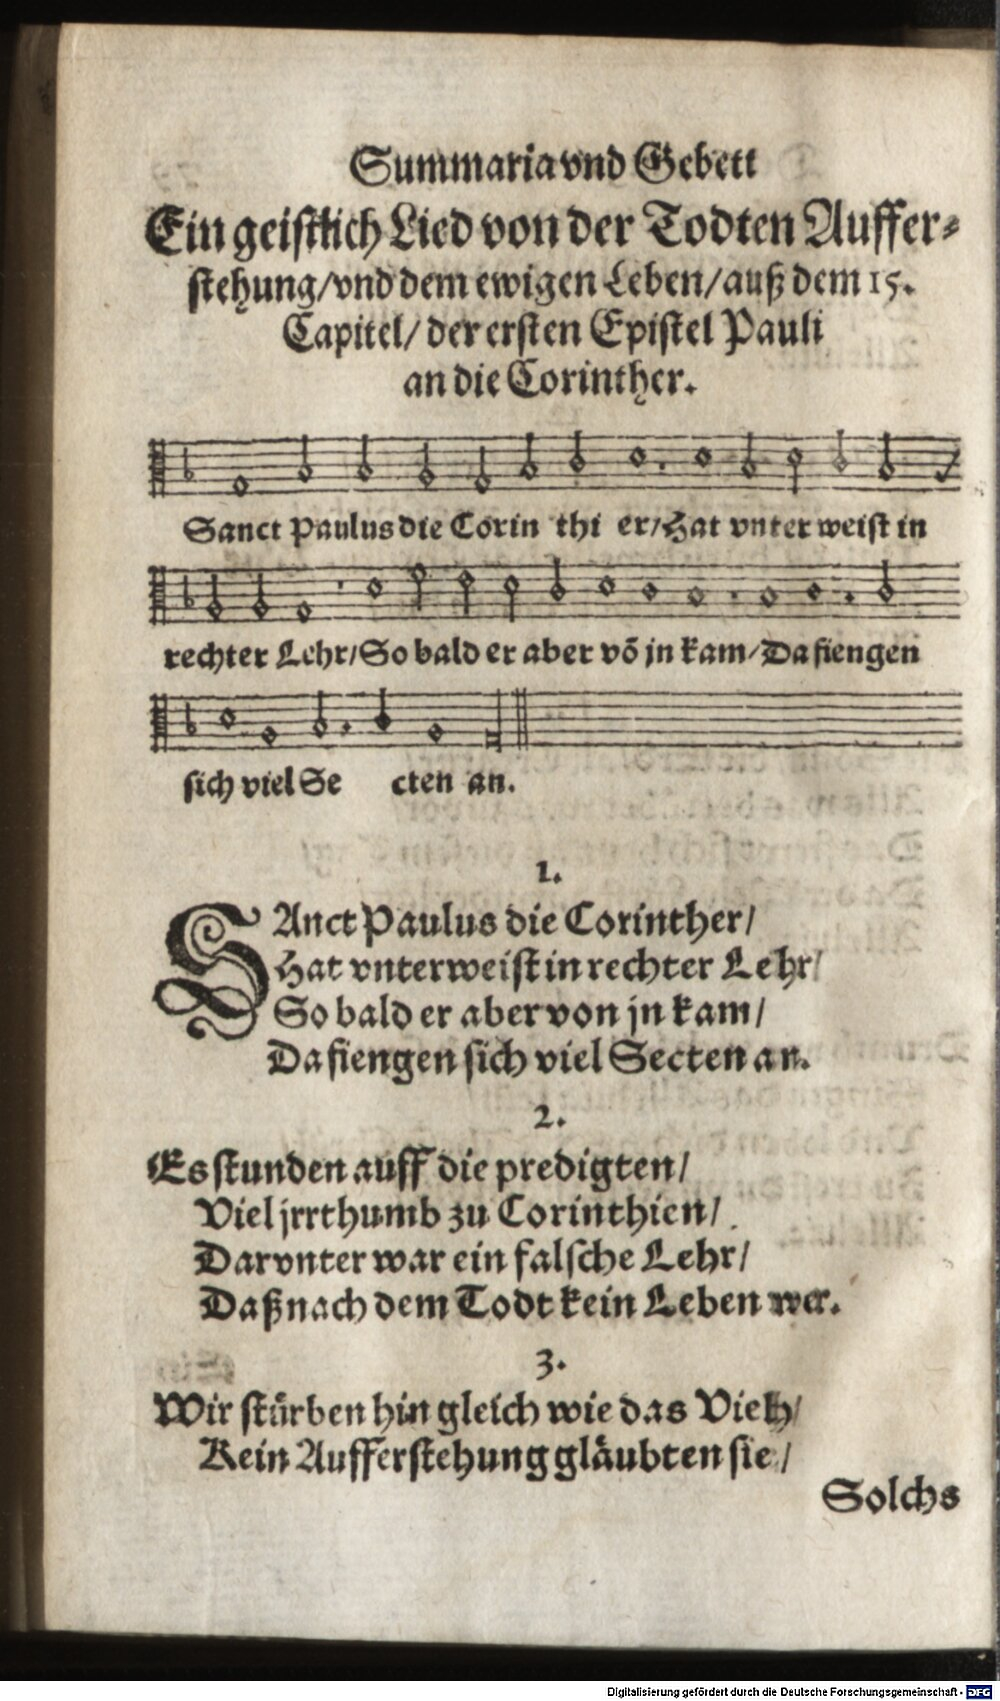 Summaria vnd Gebett
Ein geistlich Lied von der Todten Auffer⸗
stehung/ vnd dem ewigen Leben/ auß dem 15.
Capitel/ der ersten Epistel Pauli
an die Corinther.
Sanct Paulus die Corin thi er/ Hat vnter weist in
rechter Lehr/ So bald er aber võ jn kam/ Da fiengen
sich viel Se cten an.
1.
SAnct Paulus die Corinther/
Hat vnterweist in rechter Lehr/
So bald er aber von jn kam/
Da fiengen sich viel Secten an.
2.
Es stunden auff die predigten/
Viel jrrthumb zu Corinthien/
Darvnter war ein falsche Lehr/
Daß nach dem Todt kein Leben wer.
3.
Wir stürben hin gleich wie das Vieh/
Kein Aufferstehung gläubten sie/
Solchs
Digitalisierung gefördert durch die Deutsche Forschungsgemeinschaft - DFG